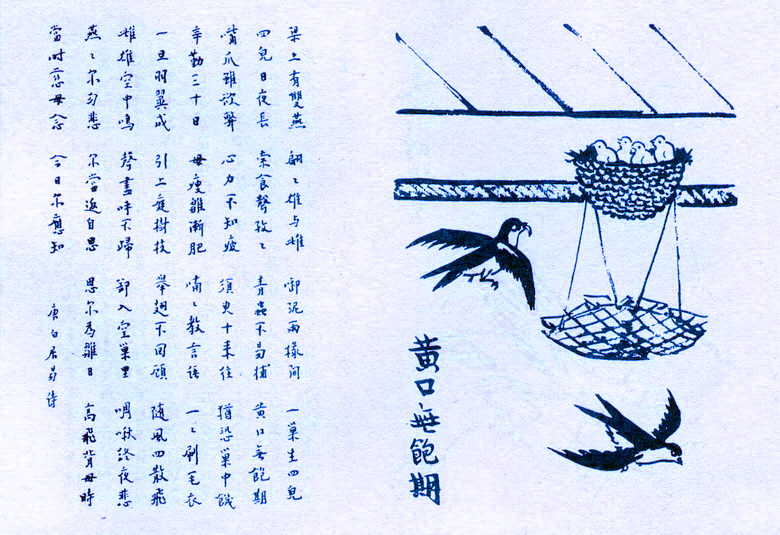 黄口無飽期
梁上有雙燕 翩々雄与雌 啣泥两椽间 一巢生四兒
四兒日夜長 索食聲孜々 青蟲不易捕 黄口無飽期
觜爪雖欲弊 心力不知疲 須臾十来往 猶恐巢中饑
辛勤三十日 母瘦雛漸肥 喃々教言语 一々刷毛衣
一旦羽翼成 引上庭樹枝 舉翅不回顧 随風四散飛
雌雄空中鳴 聲盡呼不歸 卻入空巢里 啁啾終夜悲
燕々尔勿悲 尔當返自思 思尔为雛日 高飛背母時
當时父母念 今日尔應知
唐白居易诗